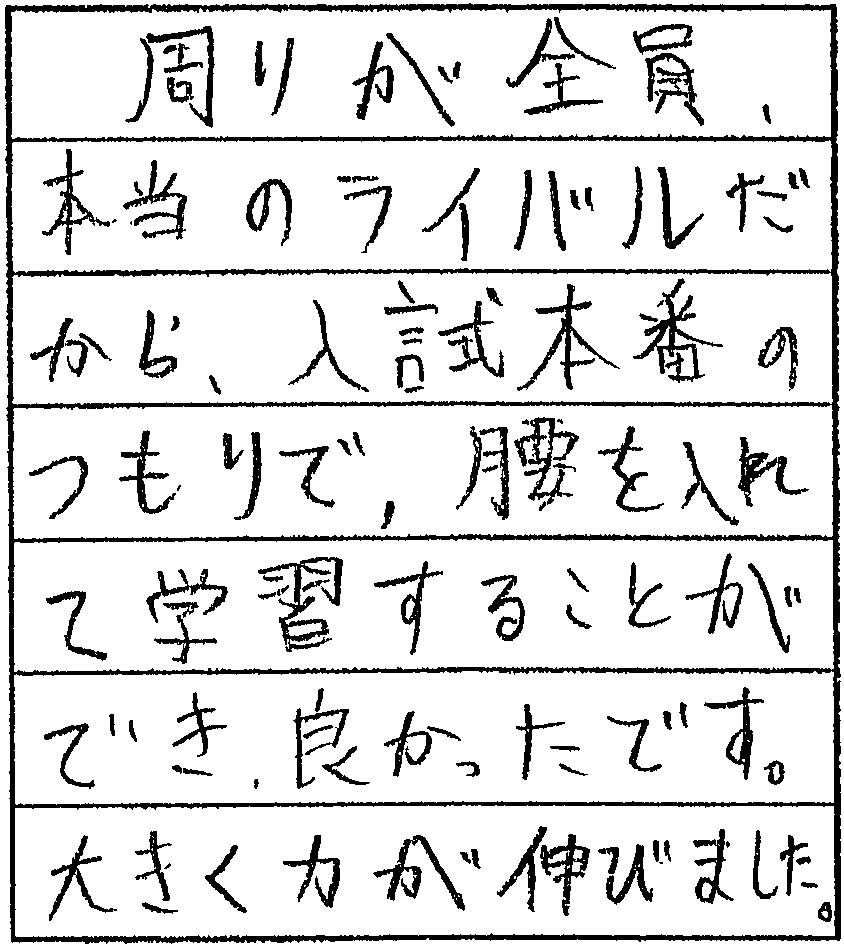 周りが全員、
本当のライバルだ
から、入試本番の
つもりで、腰を入れ
て学習することが
でき、良かったです。
大きく力が伸びました。